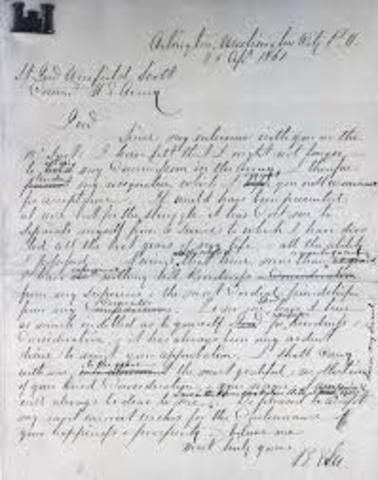 Arlington, Washington City P.O.
20 Apl 1861
Lt Genl Winfield Scott
Comd U.S. Army
Genl
Since my interview with you on the
18th Inst I have felt that I ought not longer
to retain my Commission in the Army. I therefore
tender my resignation which I request you will recommend
for acceptance. It would have been presented
at once but for the struggle it has cost me to
separate myself from a service to which I have devoted
all the best years of my life & all the ability
I possessed
nothing but kindness
from my superiors & the most Cordial friendship
from my
as much indebted as to yourself for kindness &
Consideration & it has always been my ardent
desire to merit your approbation. I shall carry
with me the most grateful recollections
of your kind Consideration & your name &
will always be dear to me.
my most earnest wishes for the Continuance of
your happiness & prosperity & believe me
most truly yours
R E Lee